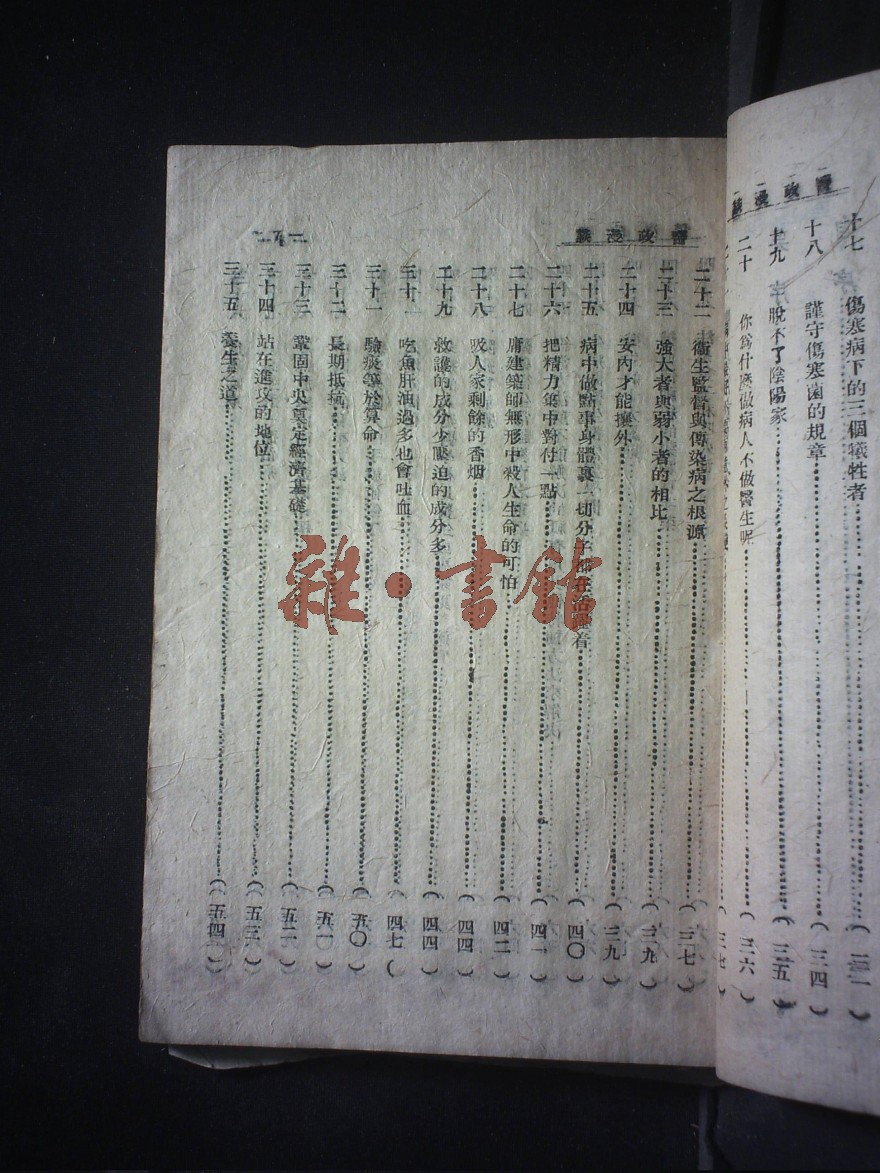 醫政漫談
十七 傷寒病下的三個犧牲者
十八 謹守傷寒菌的規章 (三四)
十九 脫不了陰陽家 (三五)
二十 你為什麼做病人不做醫生呢 (三六)
(三七)
醫政漫談
二十二 衛生監督與傳染病之根源 (三七)
二十三 強大者與弱小者的相比 (三九)
二十四 安內才能攘外 (三九)
二十五 病中做點事身體裏一切分子都在活躍着 (四〇)
二十六 把精力集中對付一點 (四一)
二十七 庸建築師無形中殺人生命的可怕 (四二)
二十八 吸人家剩餘的香烟 (四四)
二十九 救護的成分少壓迫的成分多 (四四)
三十 吃魚肝油過多也會吐血 (四七)
三十一 驗痰等於算命 (五〇)
三十二 長期抵抗 (五一)
三十三 鞏固中央奠定經濟基礎 (五二)
三十四 站在進攻的地位 (五三)
三十五 養生之道 (五四)
雜·書館